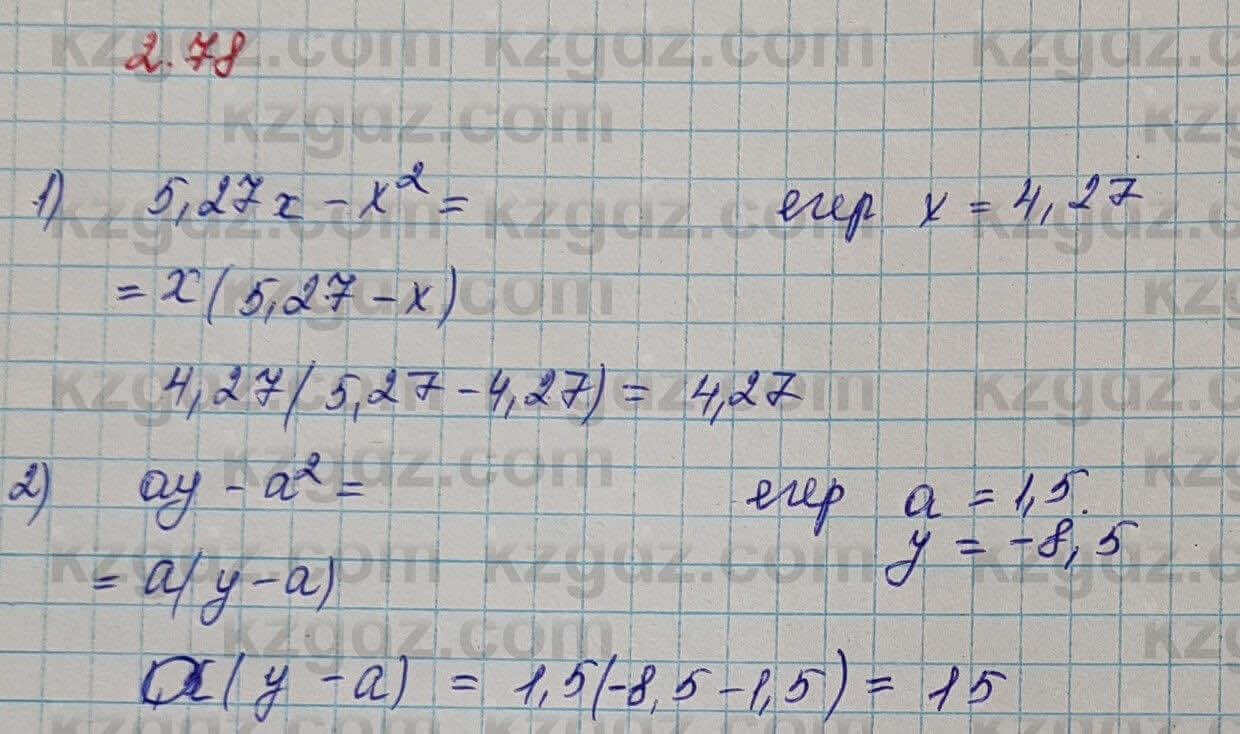 2.78
1) 5,27x - x² = егер x = 4,27
= x(5,27 - x)
4,27(5,27 - 4,27) = 4,27
2) ay - a² = егер a = 1,5.
y = -8,5
= a(y - a)
a(y - a) = 1,5(-8,5 - 1,5) = 15
kzgdz.com